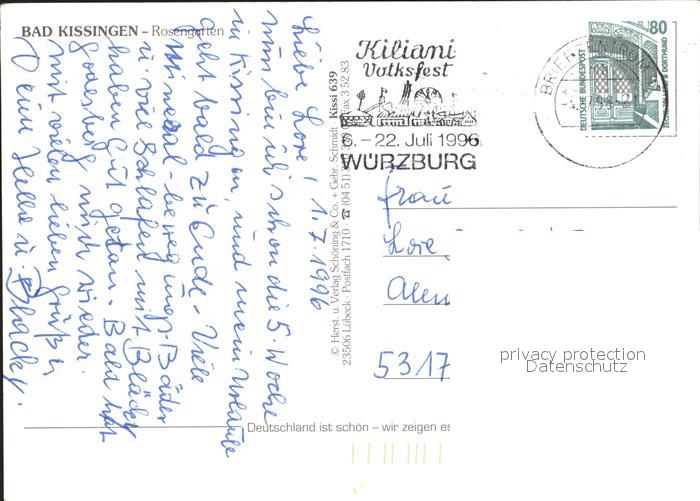 BAD KISSINGEN – Rosengarten
Liebe Lore! 1.7.1996
nun bin ich schon die 5. Woche
in Kissingen, und mein Urlaub
geht bald zu Ende. Viele
Mineral-bewegungs-Bäder
u. viel Schlafen mit Blacky
haben gut getan. Bald hat
Godesberg mich wieder.
Mit vielen lieben Grüßen
Deine Hella u. Blacky.
© Herst. u. Verlag Schöning & Co. + Gebr. Schmidt · Kissi 639
23506 Lübeck · Postfach 1710 · ☎ (04 51) Fax 3 52 83
Kiliani
Volksfest
6.–22. Juli 1996
WÜRZBURG
80
DEUTSCHE BUNDESPOST
DORTMUND
BRIEFZENTRUM
Frau
Lore
5317
privacy protection
Datenschutz
Deutschland ist schön – wir zeigen es